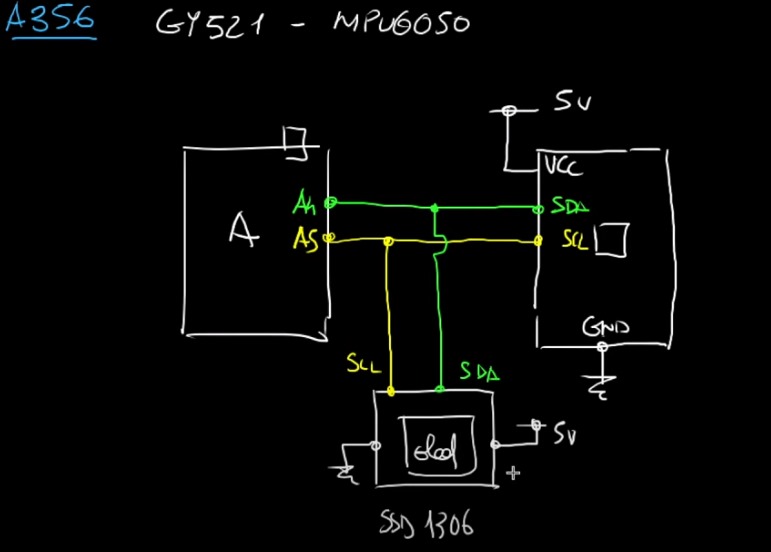 A356 GY521 - MPU6050
5V
VCC
A4 SDA
A A5 SCL
GND
SCL SDA
oled 5V
SSD 1306